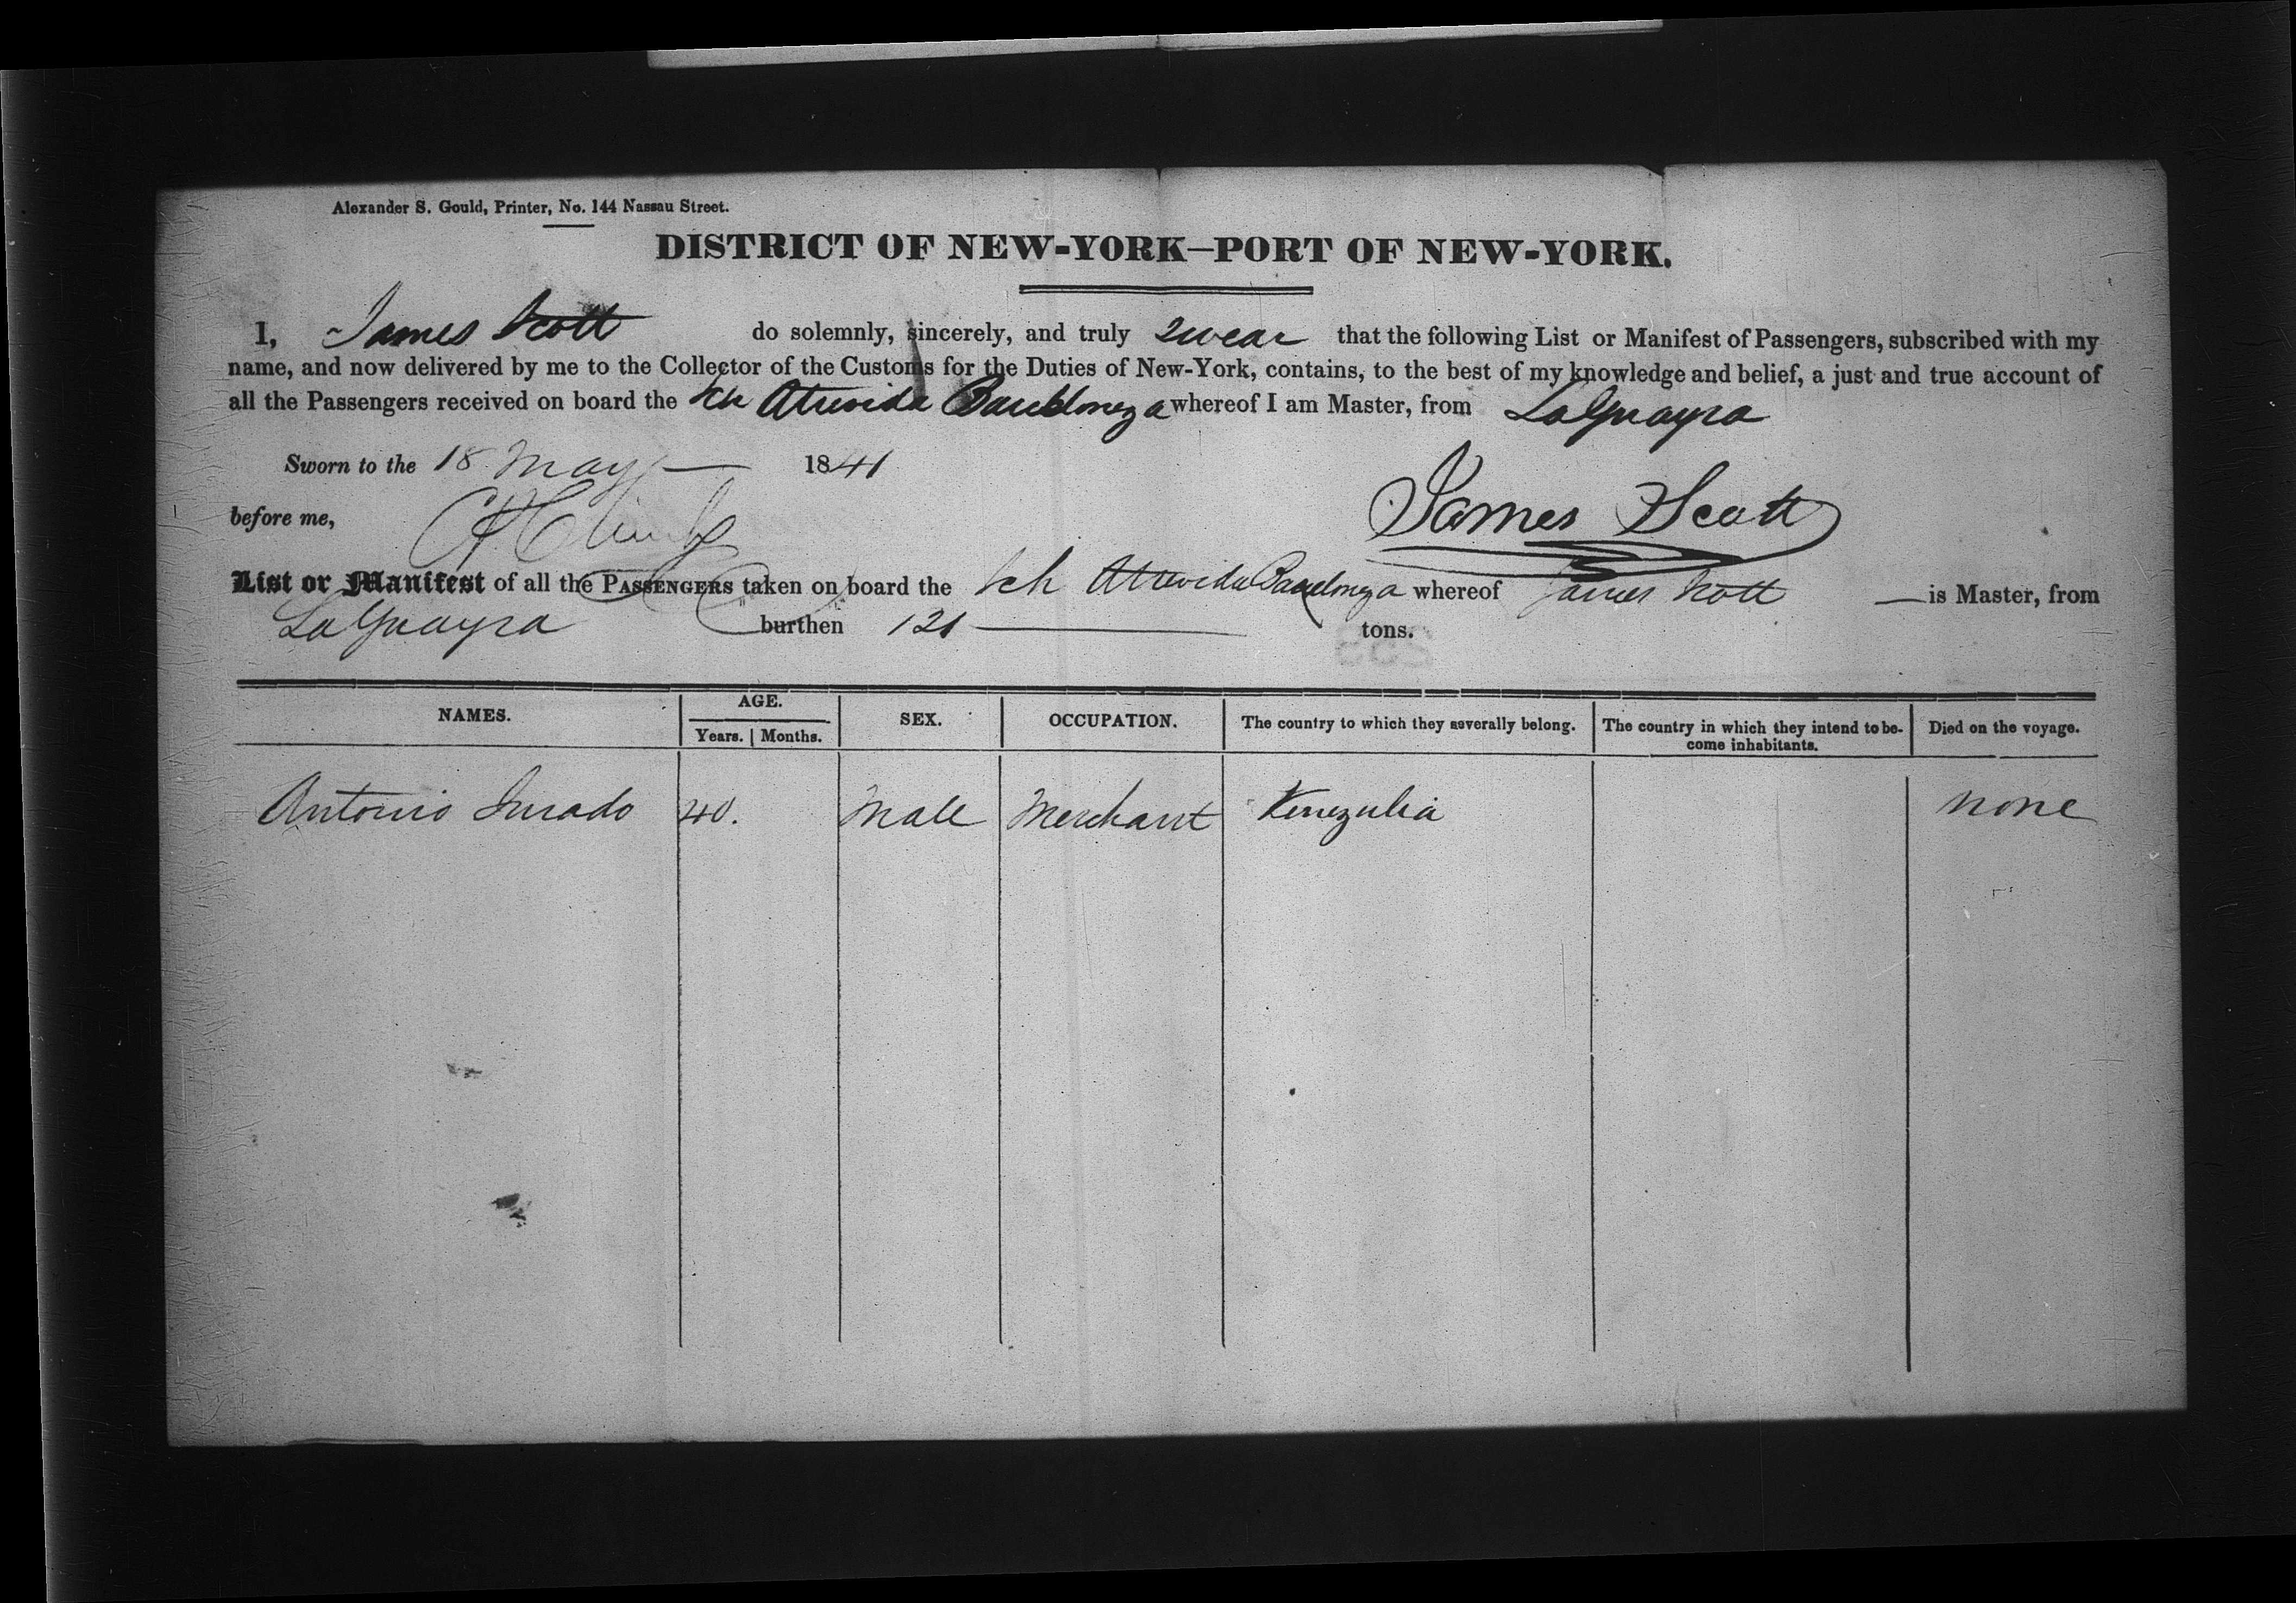 Alexander S. Gould, Printer, No. 144 Nassau Street.
DISTRICT OF NEW-YORK—PORT OF NEW-YORK.
I, James Scott do solemnly, sincerely, and truly swear that the following List or Manifest of Passengers, subscribed with my
name, and now delivered by me to the Collector of the Customs for the Duties of New-York, contains, to the best of my knowledge and belief, a just and true account of
all the Passengers received on board the Sch Atrevida whereof I am Master, from LaGuayra
Sworn to the 18 May 1841
James Scott
before me,
List or Manifest of all the PASSENGERS taken on board the Sch Atrevida whereof James Scott is Master, from
LaGuayra burthen 121 tons.
NAMES. AGE. Years. Months. SEX. OCCUPATION. The country to which they severally belong. The country in which they intend to be-
come inhabitants. Died on the voyage.
Antonio Jurado 40. Male Merchant Venezulia none